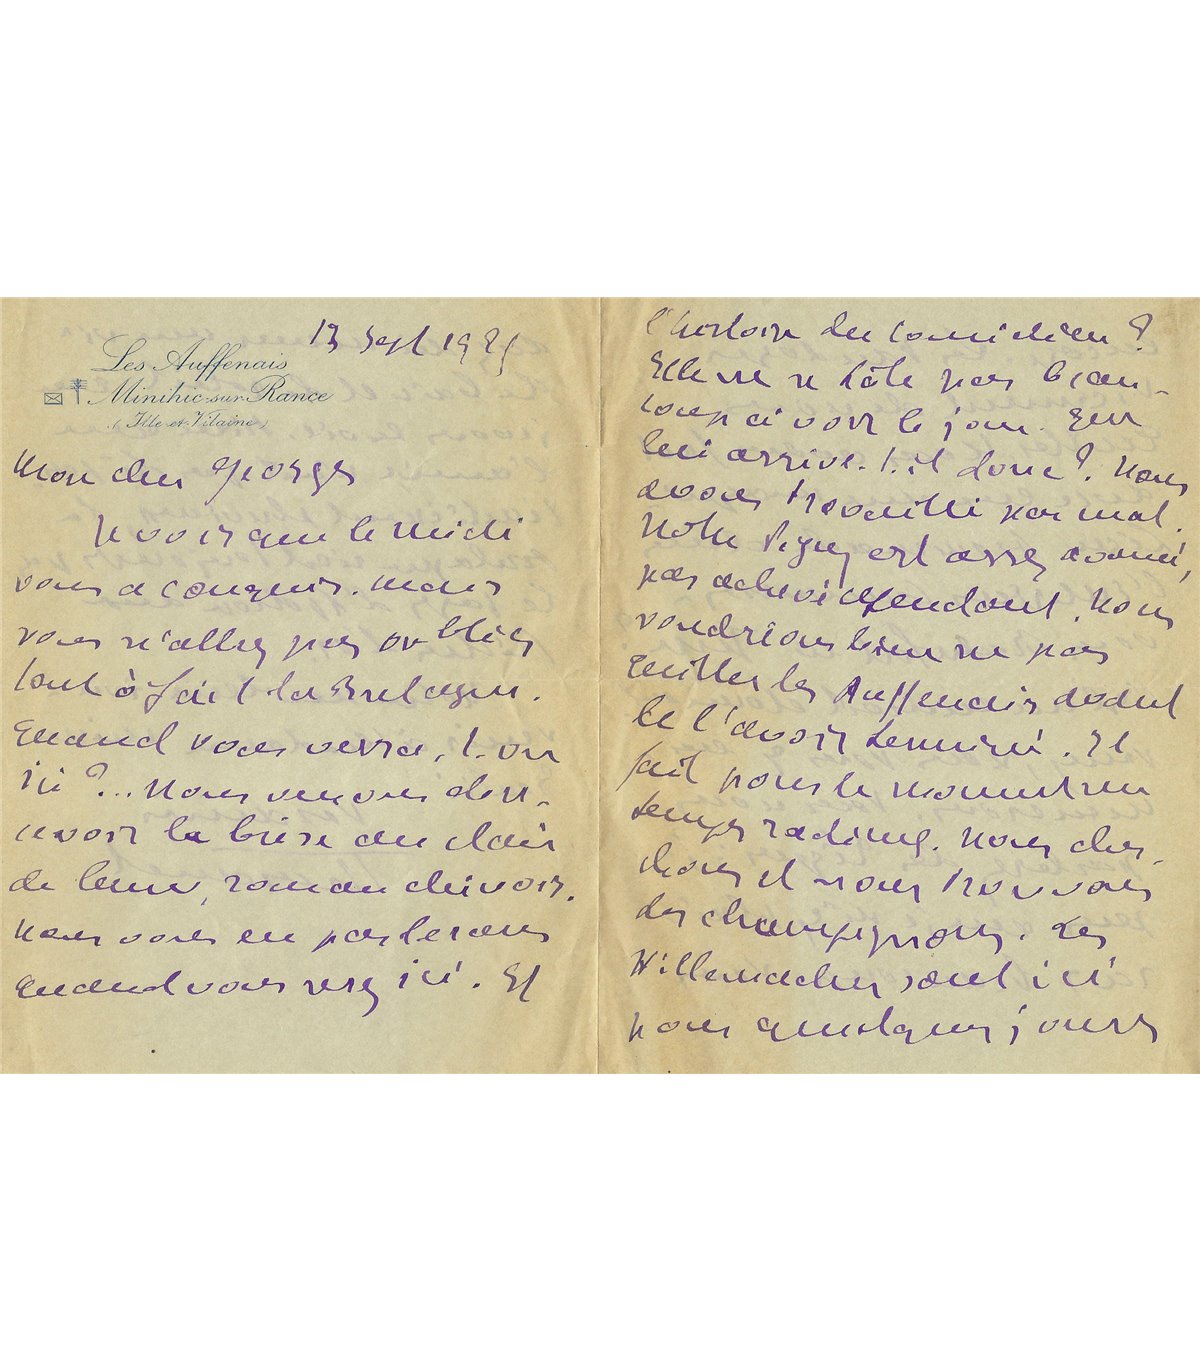 13 Sept 1925
Les Auffenais
Minihic-sur-Rance
(Ille-et-Vilaine)
Mon cher Georges
Je vois que le Midi
vous a conquis. Mais
vous n'allez pas oublier
tout à fait la Bretagne.
Quand vous verra-t-on
ici ?... Nous venons de re-
cevoir la brise au clair
de lune, roman
Nous vous en parlerons
quand vous serez ici. Et
l'histoire du comédien ?
Elle ne se hâte pas beau-
coup à voir le jour. Que
lui arrive-t-il donc ? Nous
avons travaillé pas mal.
Notre est assez avancé,
pas achevé cependant. Nous
voudrions bien ne pas
quitter les Auffenais avant
de l'avoir terminé. Il
fait pour le moment un
temps radieux. Nous cher-
chons et nous trouvons
des champignons. Les
Willemacher sont ici
pour quelques jours